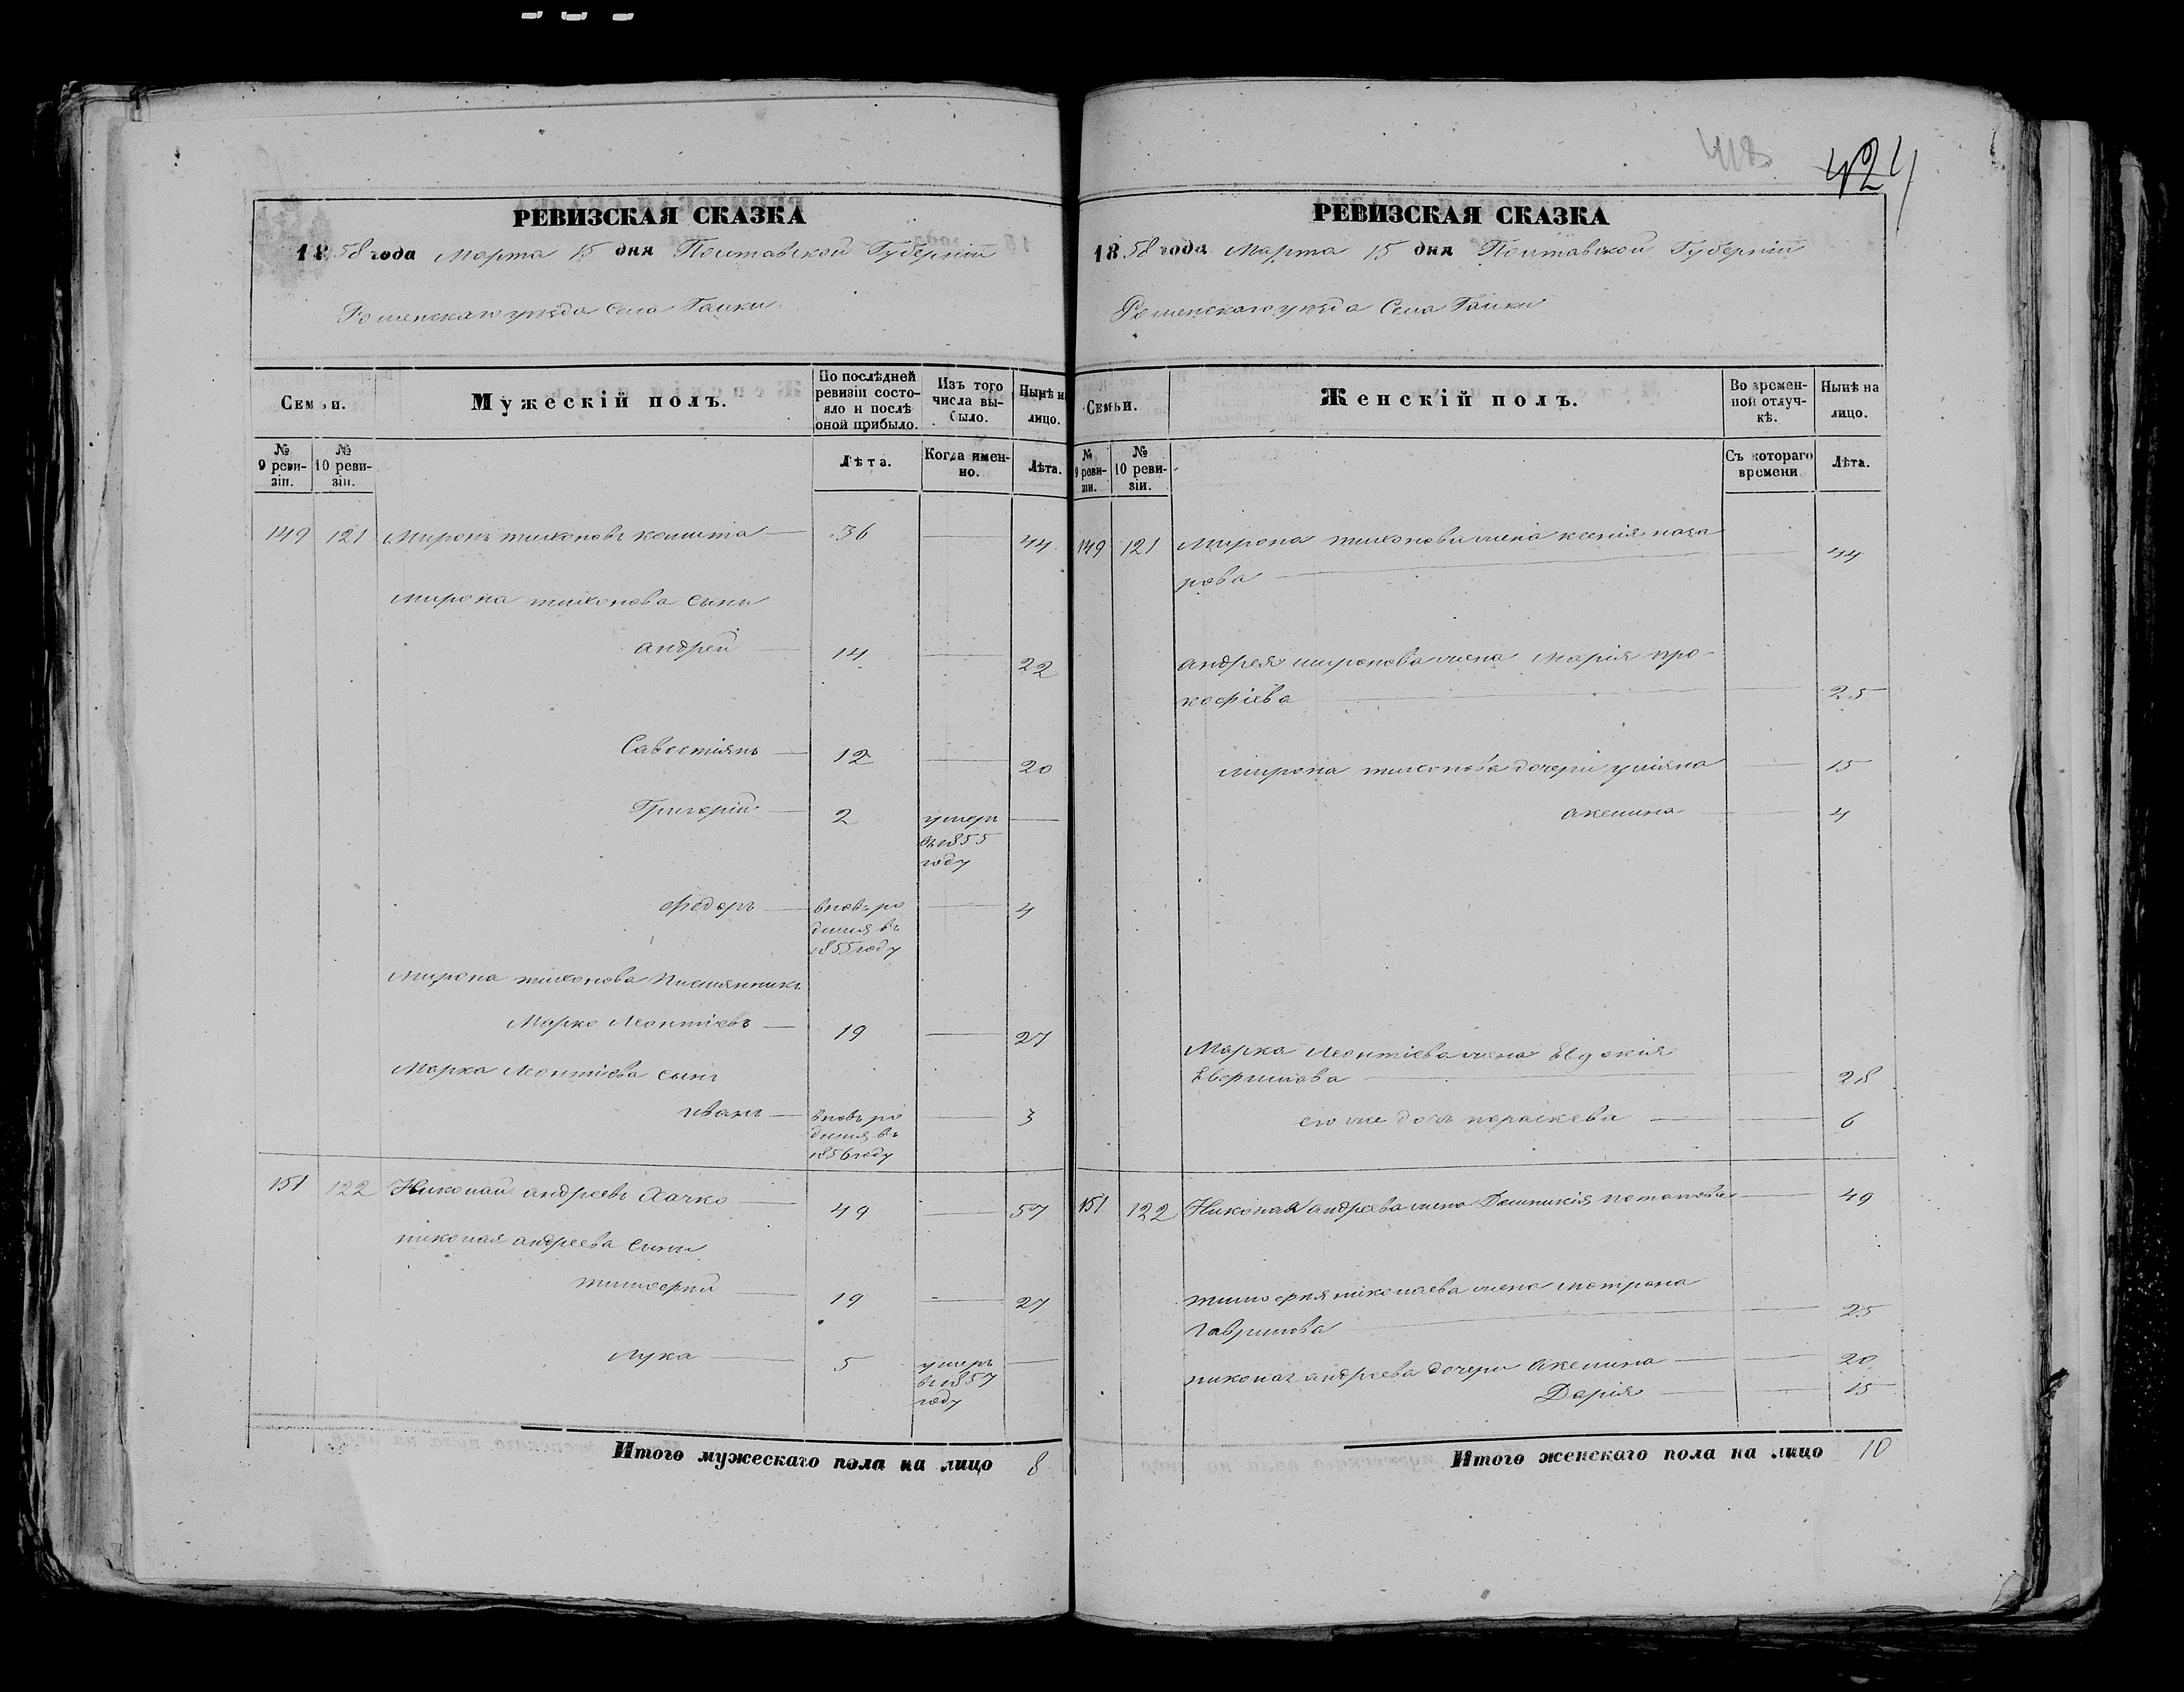 424
РЕВИЗСКАЯ СКАЗКА
1858 года Марта 15 дня Полтавской Губерніи
Роменскаго уѣзда Села Галки
Семьи.
Мужескій полъ.
По послѣдней ревизіи состояло и послѣ оной прибыло.
Изъ того числа выбыло.
Нынѣ на лицо.
№ 9 ревизіи.
№ 10 ревизіи.
Лѣта.
Когда именно.
Лѣта.
149 121 Миронъ тихоновъ 36 44
мирона тихонова сыны
андрей 14 22
Савостіянъ 12 20
Григорій 2 умеръ въ 1855 году
федоръ вновь родился въ 1855 году 4
Мирона тихонова племянникъ
Марко Леонтіевъ 19 27
Марка Леонтіева сынъ
иванъ вновь родился въ 1856 году 3
151 122 Николай андреевъ Хачко 49 57
николая андреева сыны
тимофей 19 27
лука 5 умеръ въ 1857 году
Итого мужескаго пола на лицо 8
РЕВИЗСКАЯ СКАЗКА
1858 года Марта 15 дня Полтавской Губерніи
Роменскаго уѣзда Села Галки
Семьи.
Женскій полъ.
Во временной отлучкѣ.
Нынѣ на лицо.
№ 9 ревизіи.
№ 10 ревизіи.
Съ котораго времени
Лѣта.
149 121 Мирона тихонова жена ксенія наза
рова 44
андрея миронова жена Марія про-
кофіева 25
мирона тихонова дочери уліяна 15
акенина 4
Марка Леонтіева жена Евдокія
28
его же дочь параскева 6
151 122 Николая андреева жена Потапова 49
тимофея николаева жена мотрона
гаврилова 25
николая андреева дочери акенина 20
Дарія 15
Итого женскаго пола на лицо 10